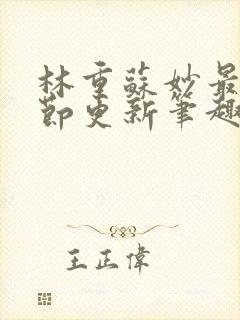 林重蘇妙最
節更新筆趣
王正偉